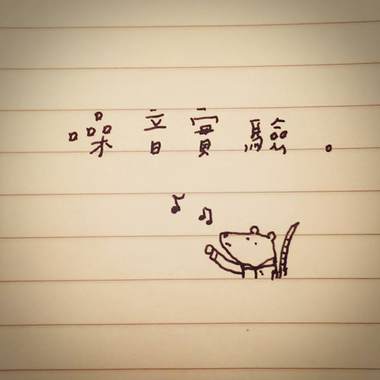 噪音實驗。